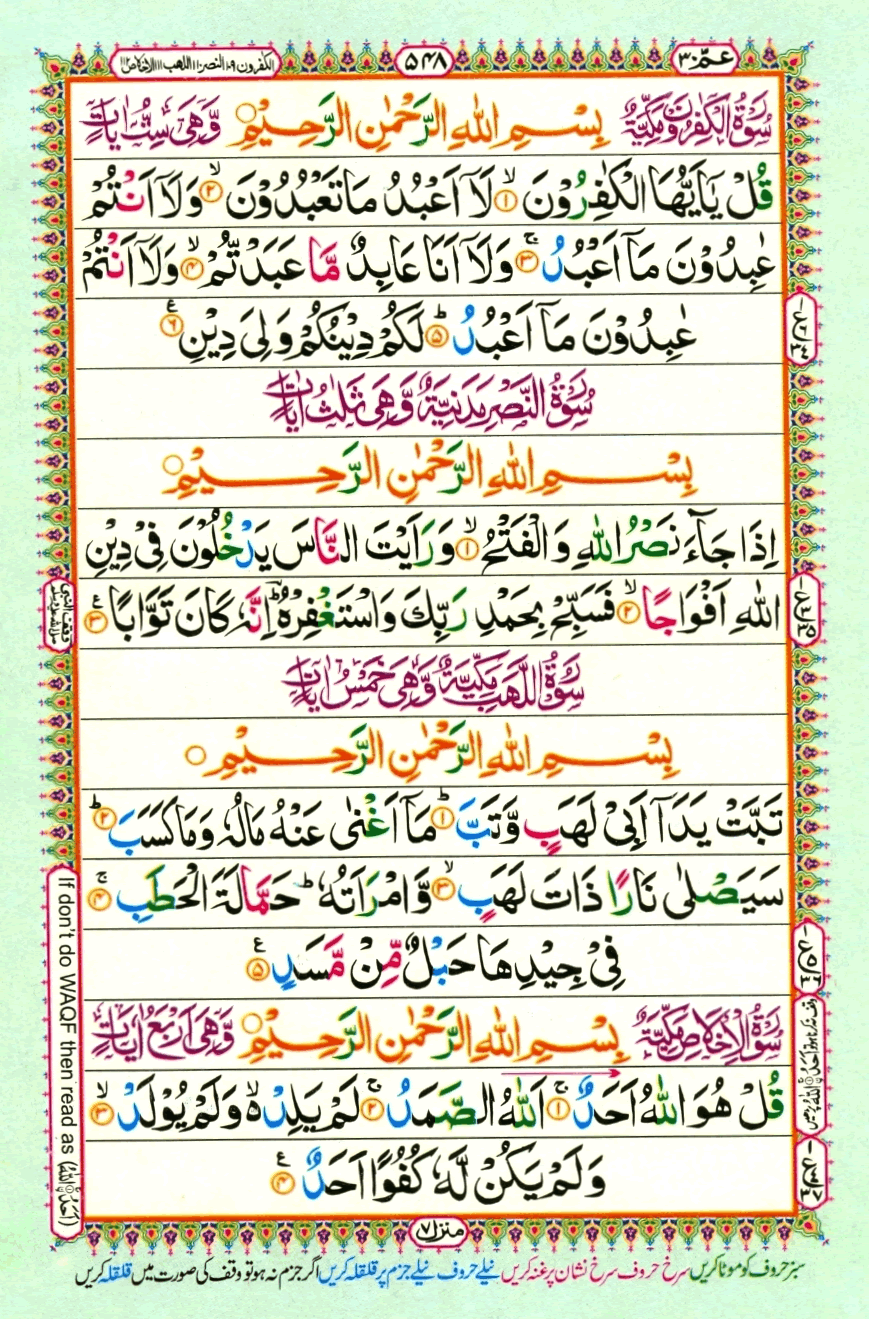 عمّ ٣٠
٥٤٨
الكٰفرون ١٠٩ النصر ١١٠ اللهب ١١١ الاخلاص ١١٢
سُوْرَةُ الْكٰفِرُوْنَ مَكِّيَّةٌ بِسْمِ اللهِ الرَّحْمٰنِ الرَّحِيْمِ وَّهِىَ سِتُّ اٰيَاتٍ
قُلْ يٰۤاَيُّهَا الْكٰفِرُوْنَ ۙ﴿۱﴾ لَاۤ اَعْبُدُ مَا تَعْبُدُوْنَ ۙ﴿۲﴾ وَلَاۤ اَنْتُمْ
عٰبِدُوْنَ مَاۤ اَعْبُدُ ۚ﴿۳﴾ وَلَاۤ اَنَا عَابِدٌ مَّا عَبَدْتُّمْ ۙ﴿۴﴾ وَلَاۤ اَنْتُمْ
عٰبِدُوْنَ مَاۤ اَعْبُدُ ؕ﴿۵﴾ لَكُمْ دِيْنُكُمْ وَلِىَ دِيْنِ ﴿۶﴾ ع
سُوْرَةُ النَّصْرِ مَدَنِيَّةٌ وَّهِىَ ثَلٰثُ اٰيَاتٍ
بِسْمِ اللهِ الرَّحْمٰنِ الرَّحِيْمِ
اِذَا جَآءَ نَصْرُ اللهِ وَالْفَتْحُ ۙ﴿۱﴾ وَرَاَيْتَ النَّاسَ يَدْخُلُوْنَ فِىْ دِيْنِ
اللهِ اَفْوَاجًا ۙ﴿۲﴾ فَسَبِّحْ بِحَمْدِ رَبِّكَ وَاسْتَغْفِرْهُ ؕ اِنَّهٗ كَانَ تَوَّابًا ﴿۳﴾ ع
وقف النبی صلی اللہ علیہ وسلم
سُوْرَةُ اللَّهَبِ مَكِّيَّةٌ وَّهِىَ خَمْسُ اٰيَاتٍ
بِسْمِ اللهِ الرَّحْمٰنِ الرَّحِيْمِ
تَبَّتْ يَدَاۤ اَبِىْ لَهَبٍ وَّتَبَّ ؕ﴿۱﴾ مَاۤ اَغْنٰى عَنْهُ مَالُهٗ وَمَا كَسَبَ ؕ﴿۲﴾
سَيَصْلٰى نَارًا ذَاتَ لَهَبٍ ۙ﴿۳﴾ وَّامْرَاَتُهٗ ؕ حَمَّالَةَ الْحَطَبِ ۚ﴿۴﴾
فِىْ جِيْدِهَا حَبْلٌ مِّنْ مَّسَدٍ ﴿۵﴾ ع
سُوْرَةُ الْاِخْلَاصِ مَكِّيَّةٌ بِسْمِ اللهِ الرَّحْمٰنِ الرَّحِيْمِ وَّهِىَ اَرْبَعُ اٰيَاتٍ
قُلْ هُوَ اللهُ اَحَدٌ ۚ﴿۱﴾ اَللهُ الصَّمَدُ ۚ﴿۲﴾ لَمْ يَلِدْ ۙ۬ وَلَمْ يُوْلَدْ ۙ﴿۳﴾
وَلَمْ يَكُنْ لَّهٗ كُفُوًا اَحَدٌ ﴿۴﴾ ع
If don't do WAQF then read as
منزل ٧
سبز حروف کو موٹا کریں سرخ حروف سرخ نشان پر غنہ کریں نیلے حروف نیلے جزم پر قلقلہ کریں اگر جزم نہ ہو تو وقف کی صورت میں قلقلہ کریں